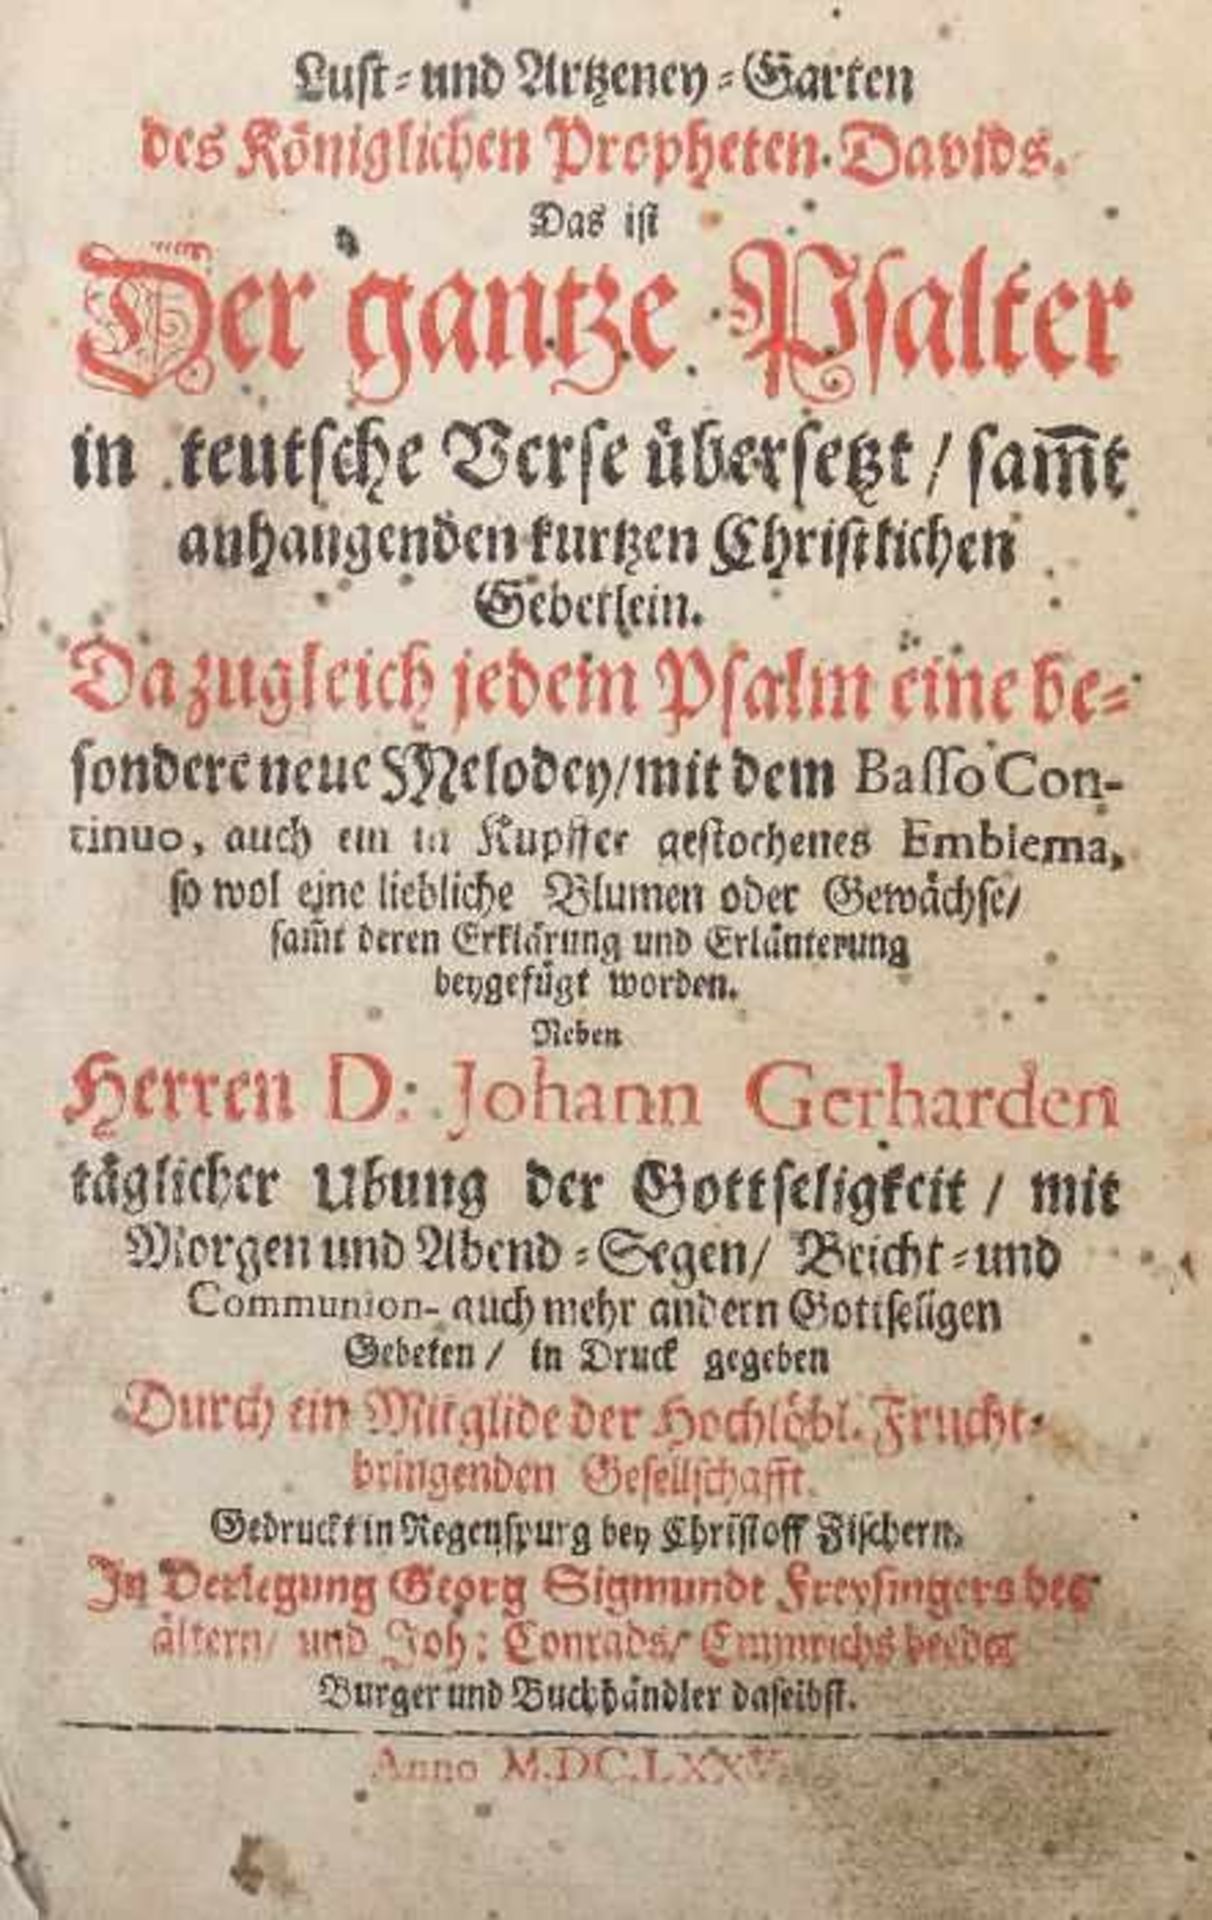 Lust-und Artzeney-Garten
des Königlichen Propheten Davids.
Das ist
Der gantze Psalter
in teutsche Verse übersetzt / sam̃t
anhangenden kurtzen Christlichen
Gebetlein.
Da zugleich jedem Psalm eine be-
sondere neue Melodey/mit dem Basso Con-
tinuo, auch ein in Kupffer gestochenes Emblema,
so wol eine liebliche Blumen oder Gewächse/
sam̃t deren Erklärung und Erläuterung
beygefügt worden.
Neben
Herren D: Johann Gerharden
täglicher Ubung der Gottseligkeit / mit
Morgen und Abend-Segen/ Beicht-und
Communion- auch mehr andern Gottseligen
Gebeten / in Druck gegeben
Durch ein Mitglide der Hochlöbl. Frucht-
bringenden Gesellschafft.
Gedruckt in Regenspurg bey Christoff Fischern.
In Verlegung Georg Sigmundt Freysingers des
ältern/ und Joh: Conrads/ Emmrichs beyder
Burger und Buchhändler daselbst.
Anno